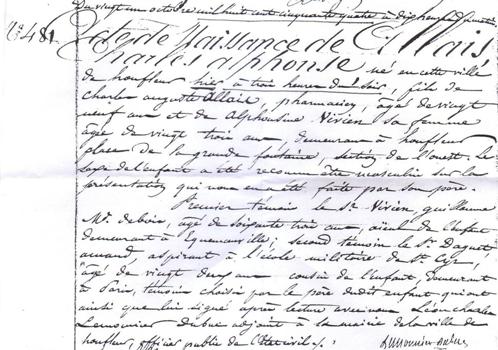 Du vingt un octobre mil huit cent cinquante quatre à dix heures du matin
N° 481. Acte de Naissance de Allais
Charles alphonse né en cette ville
de honfleur hier à trois heures du soir, fils de
charles auguste Allais, pharmacien, âgé de vingt
neuf ans et de alphonsine Vivien sa femme
âgée de vingt trois ans demeurant à honfleur
place de la grande fontaine, section de l'ouest. Le
sexe de l'enfant a été reconnu être masculin sur la
présentation qui nous en a été faite par son père.
Premier témoin le Sr Vivien, guillaume
âgé de soixante trois ans, aïeul de l'enfant
demeurant à Equemauville; second témoin le Sr Daguet
armand, aspirant à l'école militaire de St Cyr,
âgé de vingt deux ans cousin de l'enfant, demeurant
à Paris, témoins choisis par le père dudit enfant, qui ont
ainsi que lui signé après lecture avec nous Léon charles
Lemonnier dubuc adjoint à la mairie de la ville de
honfleur officier public de l'état civil Lemonnier dubuc